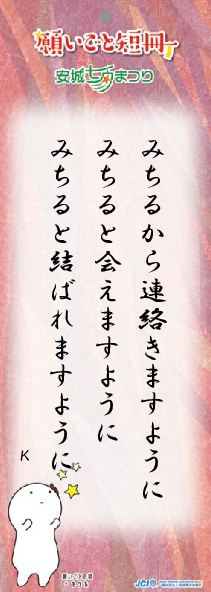 願いごと短冊
安城七夕まつり
みちるから連絡きますように
みちると会えますように
みちると結ばれますように
K
JCI